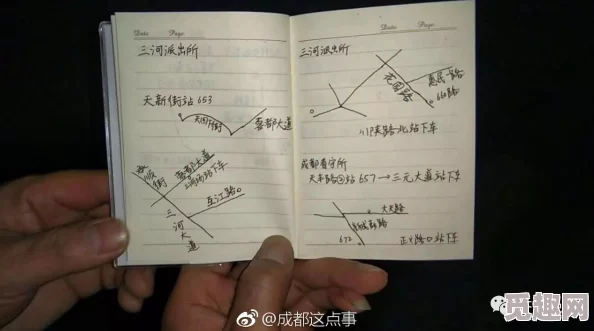 Date Page
三河派出所
天新街站 653
天回街
蓉都大道
蓉都大道
三河场站下车
三河大道
Date Page
三河派出所
花园路
惠民路
660路
川陕路北站下车
成都看守所
天车路口站 657→三元大道站下车
大天路
672
正义路口站下车
@成都这点事
觅趣网